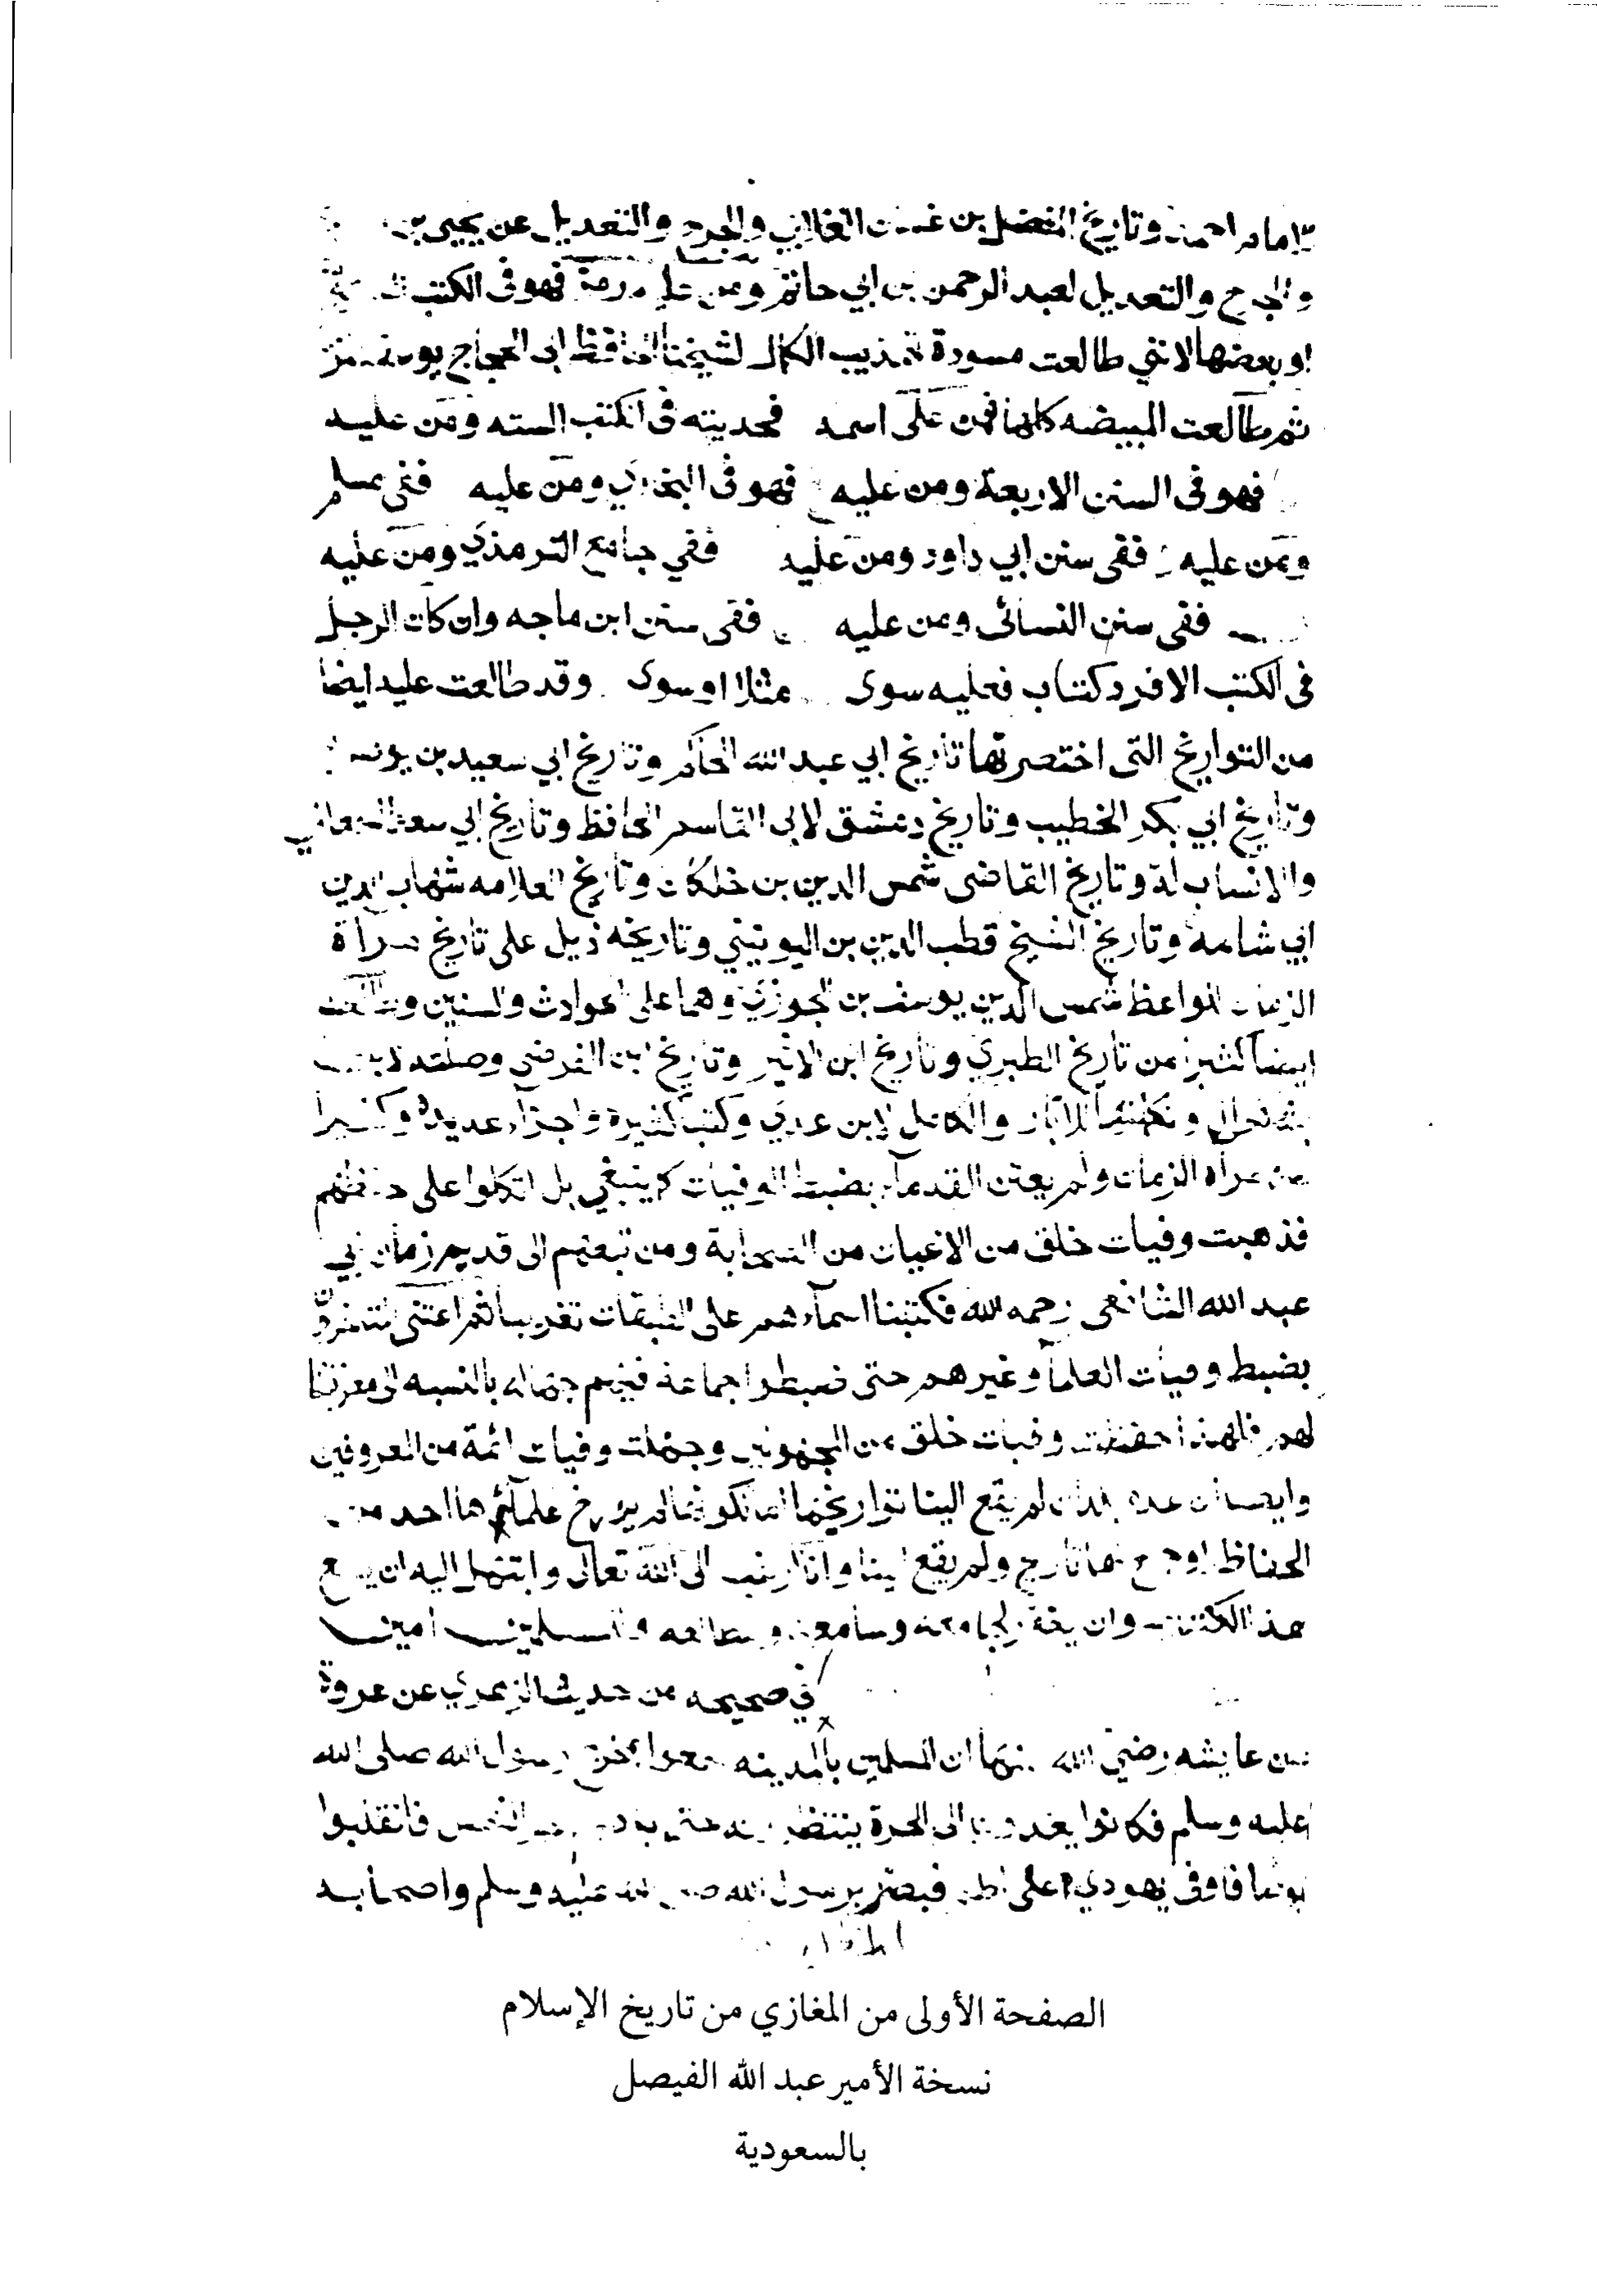 الامام احمد وتاريخ المفضل بن غسان الغلابي والجرح والتعديل عن يحيى بن
والجرح والتعديل لعبد الرحمن بن ابي حاتم ومن عليه رمز فهو في الكتب
او بعضها لانني طالعت مسودة تهذيب الكمال لشيخنا الحافظ ابي الحجاج يوسف
ثم طالعت المبيضه كلها فمن على اسمه فحديثه في الكتب السته ومن عليه
فهو في السنن الاربعة ومن عليه فهو في البخاري ومن عليه ففي مسلم
ومن عليه ففي سنن ابي داود ومن عليه ففي جامع الترمذي ومن عليه
ففي سنن النسائي ومن عليه ففي سنن ابن ماجه وان كان الرجل
في الكتب الا فرد كتاب فعليه سوى مثلا او سوى وقد طالعت عليه ايضا
من التواريخ التي اختصرتها تاريخ ابي عبد الله الحاكم وتاريخ ابي سعيد بن يونس
وتاريخ ابي بكر الخطيب وتاريخ دمشق لابي القاسم الحافظ وتاريخ ابي سعد السمعاني
والانساب له وتاريخ القاضي شمس الدين بن خلكان وتاريخ العلامه شهاب الدين
ابي شامه وتاريخ الشيخ قطب الدين بن اليونيني وتاريخه ذيل على تاريخ مرآة
الزمان للواعظ شمس الدين يوسف بن الجوزي وهما على الحوادث والسنين وطالعت
ايضا كثيرا من تاريخ الطبري وتاريخ ابن الاثير وتاريخ ابن الفرضي وصلته لابن
بشكوال وتكملتها للابار والكامل لابن عدي وكتبا كثيرة واجزاء عديدة وكثيرا
من مرآه الزمان ولم يعتن القدماء بضبط الوفيات كما ينبغي بل اتكلوا على حفظهم
فذهبت وفيات خلق من الاعيان من الصحابة ومن تبعهم الى قديم زمان ابي
عبد الله الشافعي رحمه الله فكتبنا اسماءهم على الطبقات تقريبا ثم اعتنى المتاخرون
بضبط وفيات العلماء وغيرهم حتى ضبطوا جماعة فيهم جهاله بالنسبه الى معرفتنا
لهم فلهذا حفظت وفيات خلق من المجهولين وجهلت وفيات ائمة من المعروفين
وايضا فان عدة بلدان لم يقع الينا تواريخها اما لكونها لم يؤرخ علماءها احد من
الحفاظ او جمع لها تاريخ ولم يقع لينا وانا ارغب الى الله تعالى وابتهل اليه ان ينفع
بهذا الكتاب وان يغفر لجامعه وسامعه ومطالعه وللمسلمين امين
في صحيحه من حديث الزهري عن عروة
عن عايشه رضي الله عنها ان المسلمين بالمدينه سمعوا بمخرج رسول الله صلى الله
عليه وسلم فكانوا يغدون الى الحرة ينتظرونه حتى يردهم حر الشمس فانقلبوا
يوما فاوفى يهودي على اطم فبصر برسول الله صلى الله عليه وسلم واصحابه
الصفحة الأولى من المغازي من تاريخ الإسلام
نسخة الأمير عبد الله الفيصل
بالسعودية